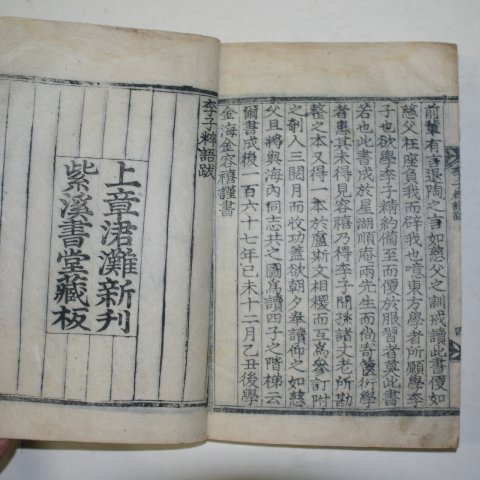 前輩有言退陶之言如慈父之訓戒讀此書儼如
慈父在座負我而辟我也噫東方學者所願學李
子也欲學李子精約備至而便於服習者莫此書
若也此書成於星湖順庵兩先生而尚斳衍學
者患其未得見容禧乃得李子開孫諸文老所勘
整之本又得一本於盧斯文相稷而互爲參訂附
之剞人三閱月而收功盖欲朝夕奉讀仰之如慈
父且將與海內同志共之圖爲讀四子之階梯云
爾書成後一百六十七年己未十二月乙丑後學
金海金容禧謹書
李子粹語跋
四
李子粹語跋
上章涒灘新刊
紫溪書堂藏板